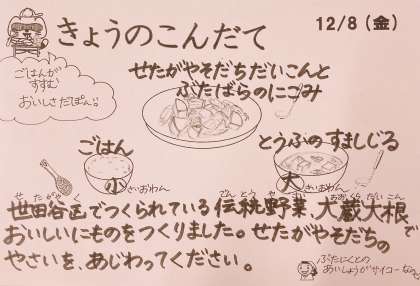 きょうのこんだて
12/8(金)
ごはんが
すすむ
おいしさだぽん!!
せたがやそだちだいこんと
ぶたばらのにこみ
ごはん
小
さいおわん
とうふのすましじる
大
きいおわん
せたがやく
でんとうやさい
おおくらだいこん
世田谷区でつくられている伝統野菜、大蔵大根で
おいしいにものをつくりました。せたがやそだちの
やさいを、あじわってください。
ぶたにくとの
あいしょうがサイコーなの